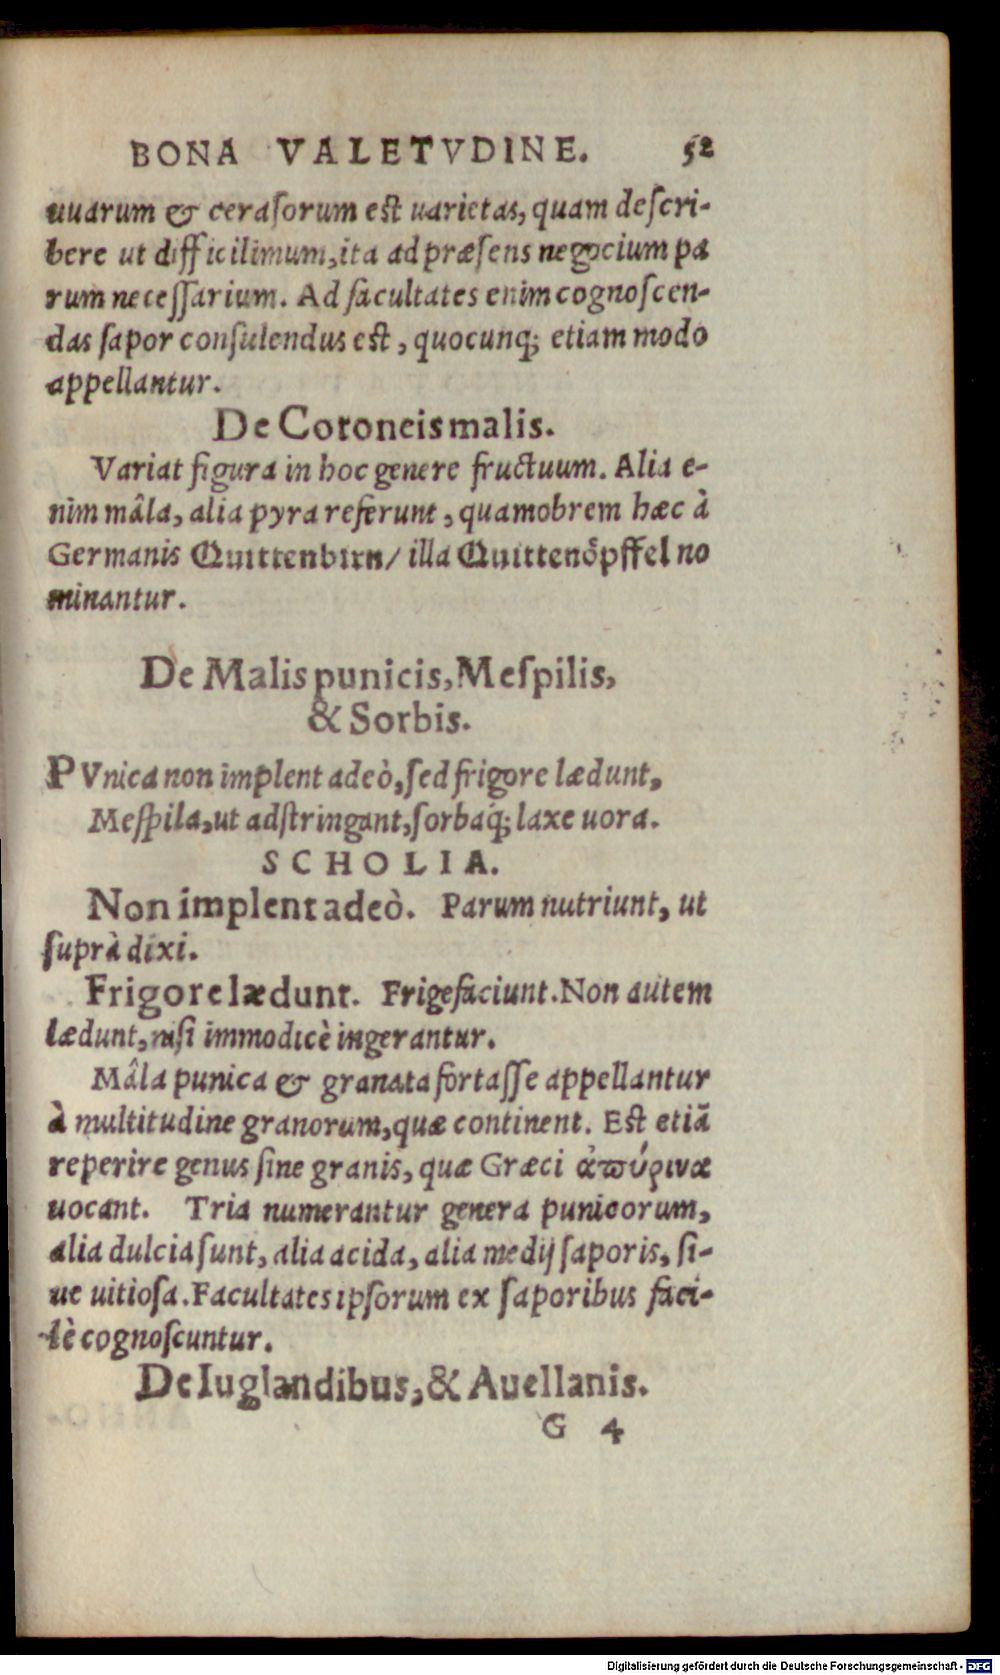 BONA VALETVDINE. 52
uuarum & ceraſorum eſt uarietas, quam deſcri-
bere ut difficilimum, ita ad præſens negocium pa
rum neceſſarium. Ad facultates enim cognoſcen-
das ſapor conſulendus eſt, quocunq; etiam modo
appellantur.
De Cotoneis malis.
Variat figura in hoc genere fructuum. Alia e-
nim mâla, alia pyra referunt, quamobrem hæc à
Germanis Quittenbirn/ illa Quittenöpffel no
minantur.
De Malis punicis, Meſpilis,
& Sorbis.
PVnica non implent adeò, ſed frigore lædunt,
Meſpila, ut adſtringant, ſorbaq́; laxe uora.
SCHOLIA.
Non implent adeò. Parum nutriunt, ut
ſuprà dixi.
Frigore lædunt. Frigefaciunt. Non autem
lædunt, niſi immodicè ingerantur.
Mâla punica & granata fortaſſe appellantur
à multitudine granorum, quæ continent. Eſt etiã
reperire genus ſine granis, quæ Græci ἀϖύρινα
uocant. Tria numerantur genera punicorum,
alia dulcia ſunt, alia acida, alia medij ſaporis, ſi-
ue uitioſa. Facultates ipſorum ex ſaporibus faci-
lè cognoſcuntur.
De Iuglandibus, & Auellanis.
G 4
Digitalisierung gefördert durch die Deutsche Forschungsgemeinschaft - DFG